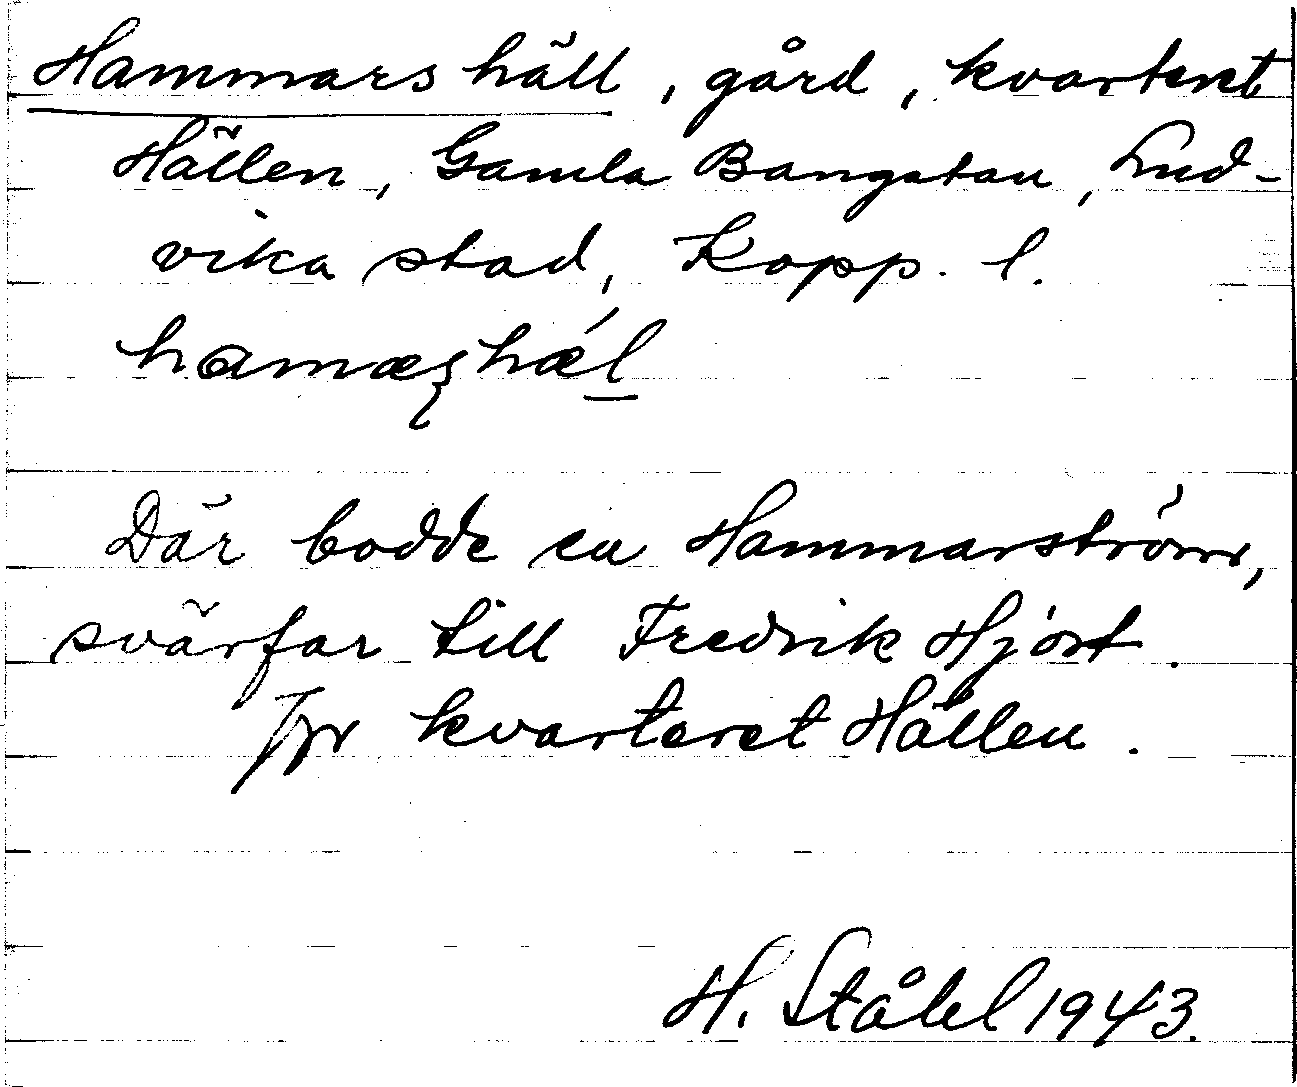 Hammars häll, gård, kvarteret
Hällen, Gamla Bangatan, Lud-
vika stad, Kopp. l.
hamæʂhǽl
Där bodde en Hammarström,
svärfar till Fredrik Hjort.
Jfr kvarteret Hällen.
H. Ståhl 1943.